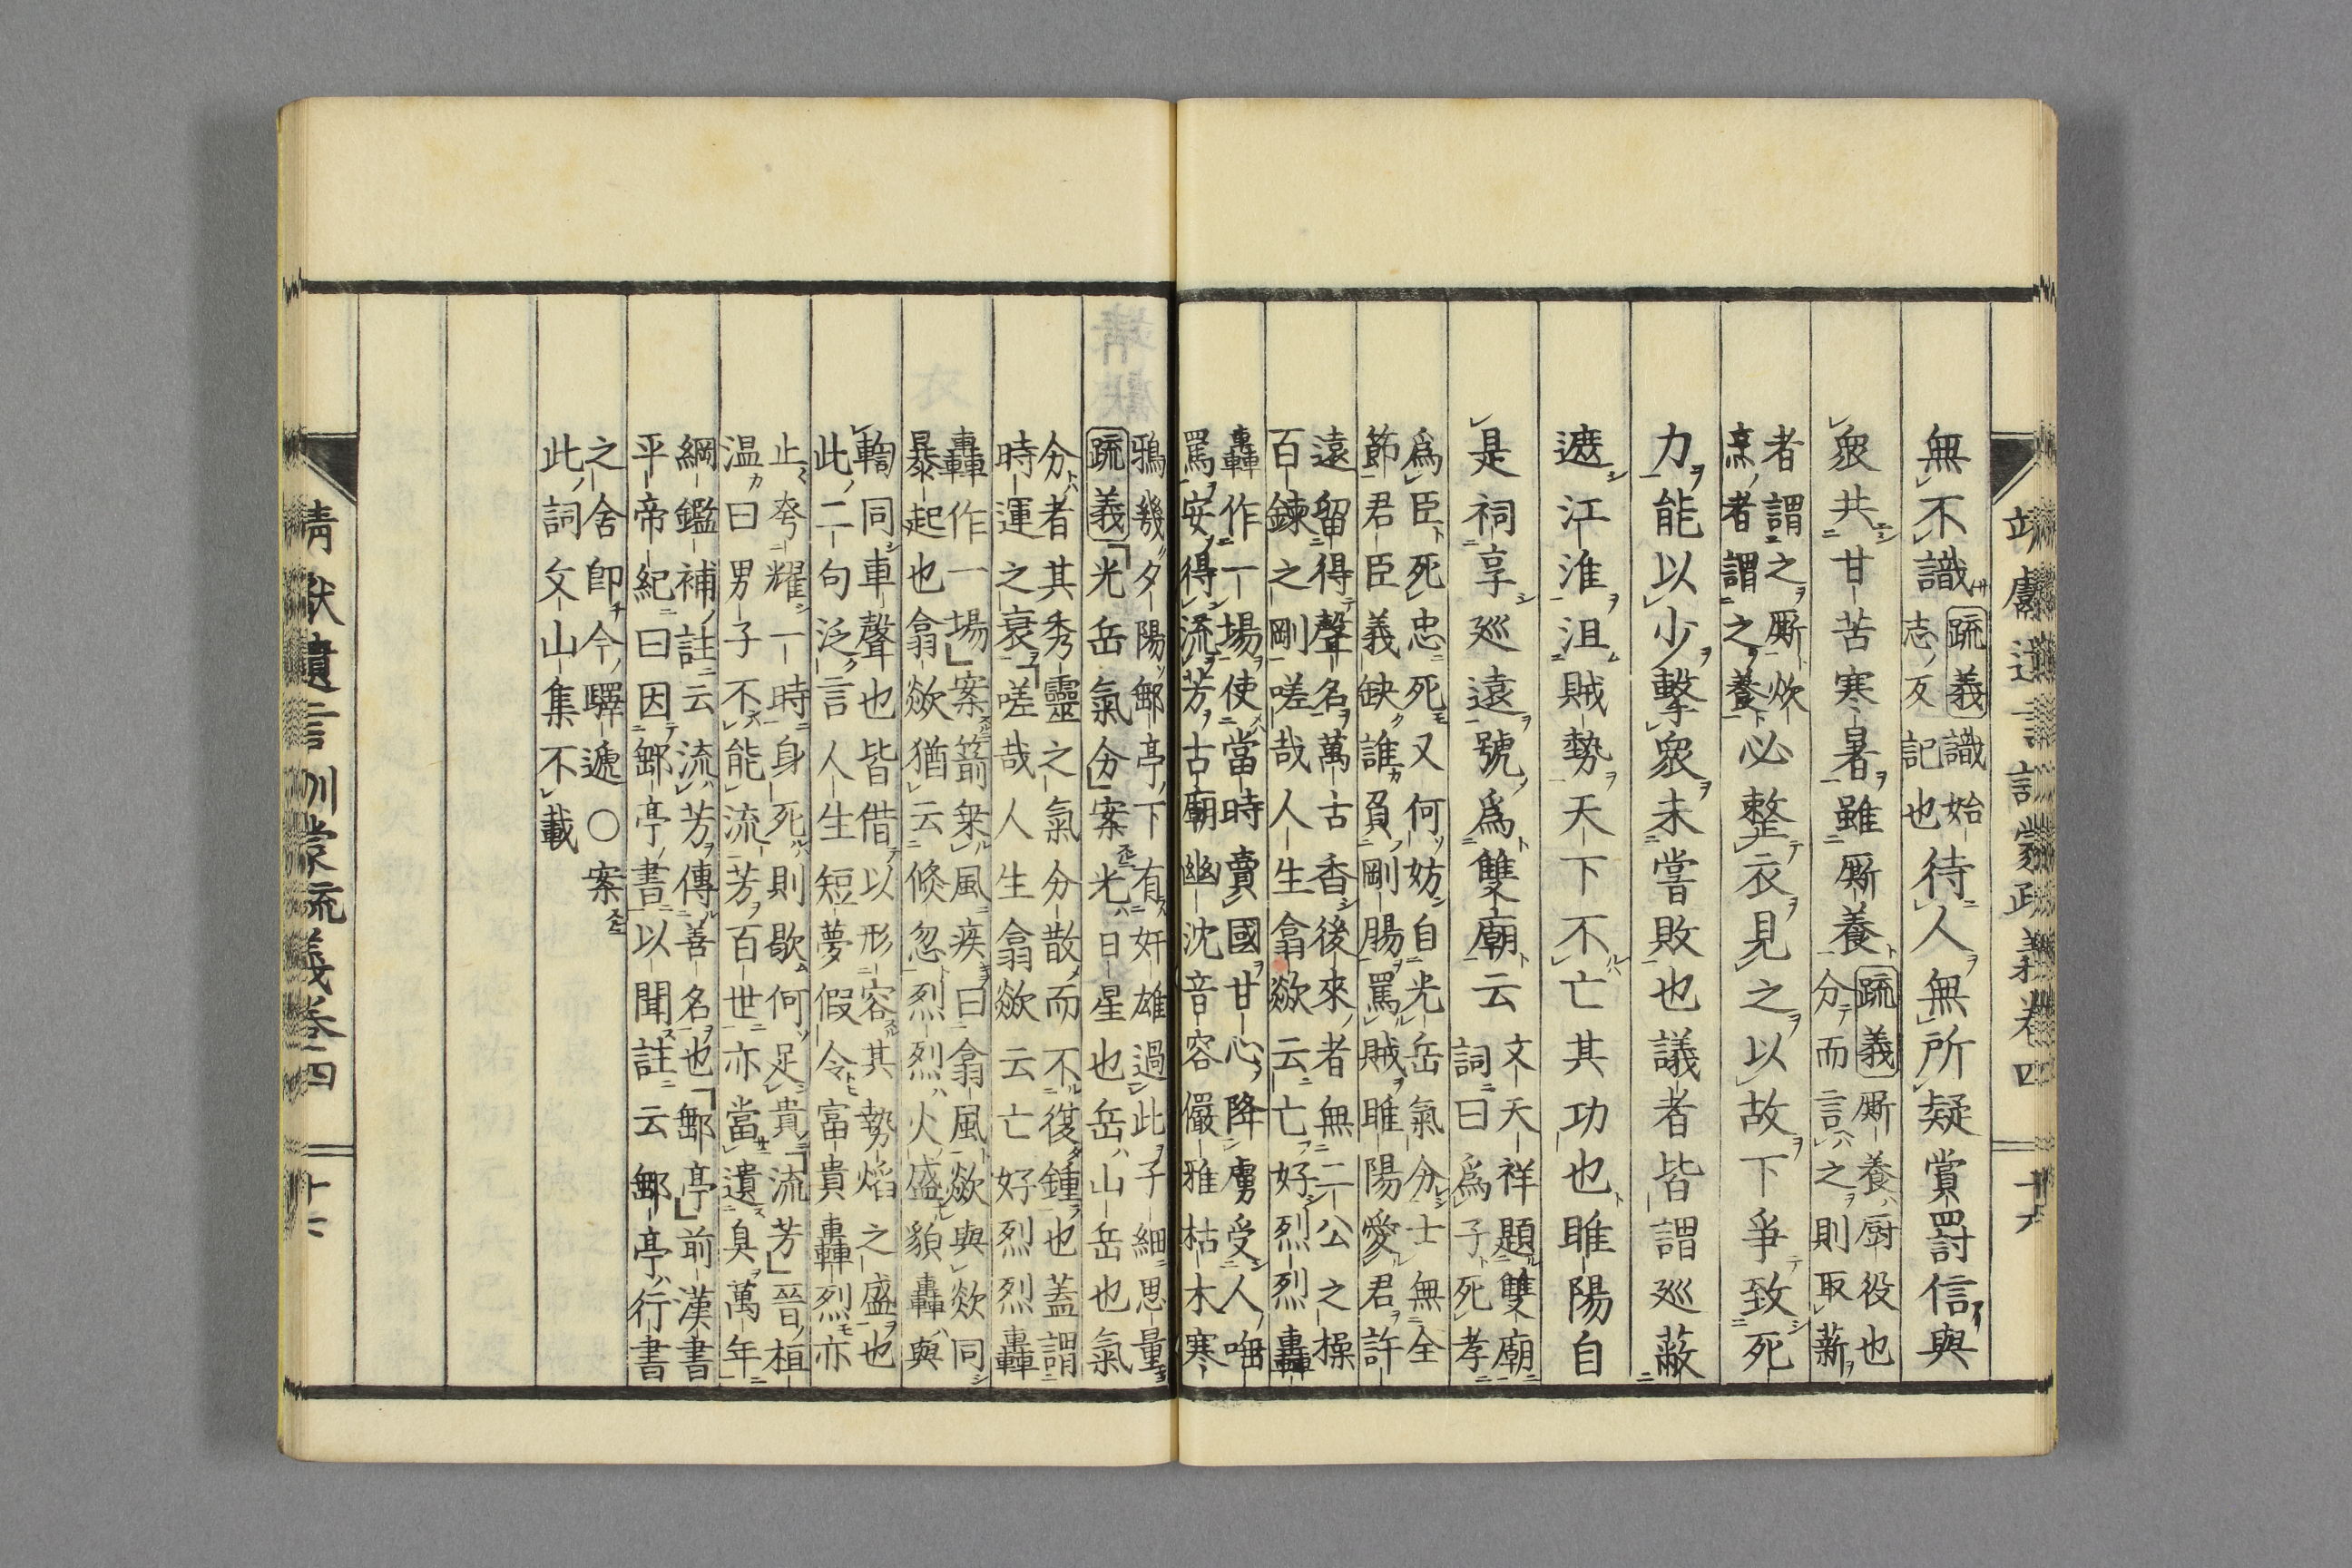 靖獻遺言訓蒙疏義卷四 十六
無不識
疏義識始
志反記也
待人無所疑賞罰信與
衆共甘苦寒暑雖厮養
疏義厮養厨役也
分而言之則取薪
者謂之厮炊
烹者謂之養
必整衣見之以故下爭致死
力能以少擊衆未嘗敗也議者皆謂巡蔽
遮江淮沮賊勢天下不亡其功也睢陽自
是祠享巡遠號爲雙廟云
文天祥題雙廟
詞曰爲子死孝
爲臣死忠死又何妨自光岳氣分士無全
節君臣義缺誰負剛腸罵賊睢陽愛君許
遠留得聲名萬古香後來者無二公之操
百鍊之剛嗟哉人生翕歘云亡好烈烈轟
轟作一場使當時賣國甘心降虜受人唾
罵安得流芳古廟幽沈音容儼雅枯木寒
鴉幾夕陽郵亭下有奸雄過此子細思量
疏義「光岳氣分」案光日星也岳山岳也氣
分者其秀靈之氣分散而不復鍾也蓋謂
時運之衰「嗟哉人生翕歘云亡好烈烈轟
轟作一場」案箭乗風疾曰翕風歘與欻同
暴起也翕歘猶云倐忽烈烈火盛貌轟與
輷同車聲也皆借以形容其勢焰之盛也
此二句泛言人生短夢假令富貴轟烈亦
止夸耀一時身死則歇何足貴「流芳」晉桓
温曰男子不能流芳百世亦當遺臭萬年
綱鑑補註云流芳傳善名也「郵亭」前漢書
平帝紀曰因郵亭書以聞註云郵亭行書
之舍卽今驛遞○案
此詞文山集不載
靖獻遺言訓蒙疏義卷四